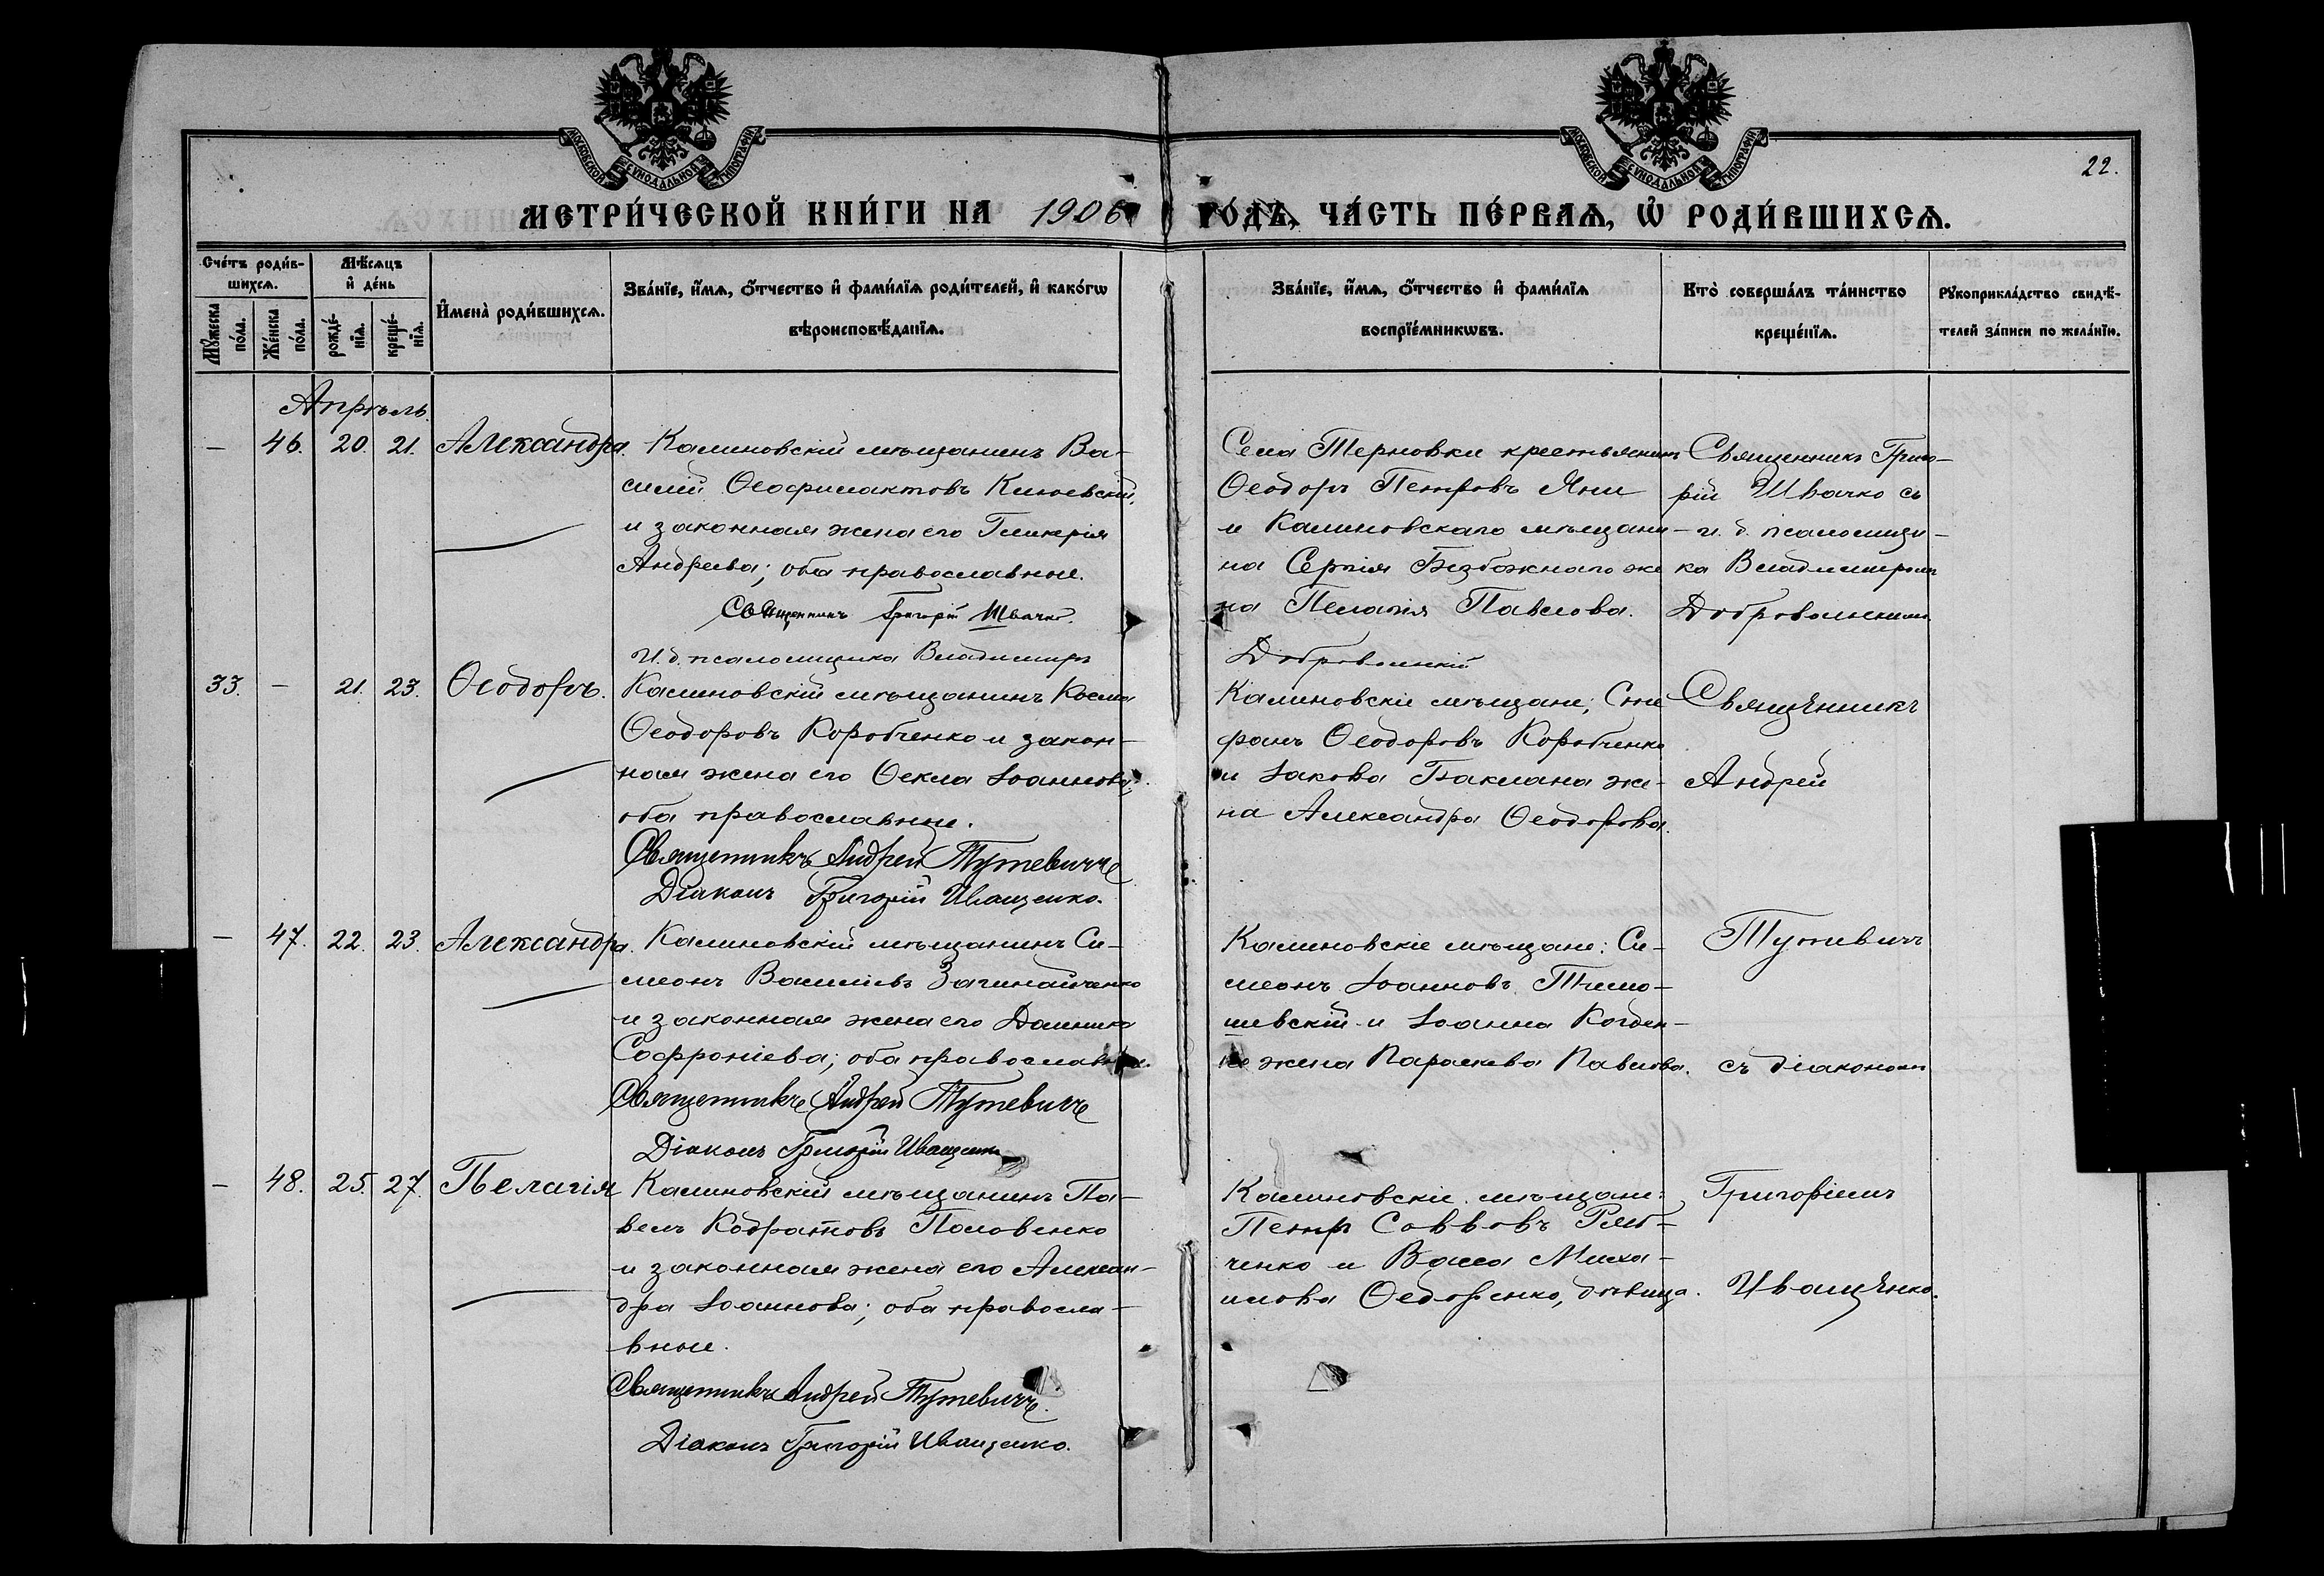 МОСКОВСКОЙ СѴНОДАЛЬНОЙ ТИПОГРАФІИ
МОСКОВСКОЙ СѴНОДАЛЬНОЙ ТИПОГРАФІИ
22.
МЕТРИ́ЧЕСКОЙ КНИ́ГИ НА 1906 ГО́ДЪ, ЧА́СТЬ ПЕ́РВАѦ, Ѽ РОДИ́ВШИХСѦ.
Сче́тъ роди́в-
шихсѧ.
Мꙋ́жеска по́ла.
Же́нска по́ла.
Мѣ́сѧцъ
и҆ де́нь
рожде́-нїѧ.
креще́-нїѧ.
И҆мена̀ роди́вшихсѧ.
Зва́нїе, и҆́мѧ, ѻ҆́тчество и҆ фами́лїѧ роди́телей, и҆ како́гѡ
вѣроисповѣ́данїѧ.
Зва́нїе, и҆́мѧ, ѻ҆́тчество и҆ фами́лїѧ
воспрїе́мникѡвъ.
Кто̀ соверша́лъ та́инство
креще́нїѧ.
Рꙋкоприкла́дство свидѣ́-
телей за́писи по жела́нїю.
Апрѣль.
— 46. 20. 21. Александра.
Калиновскій мѣщанинъ Ва-
силій Ѳеофилактовъ
и законная жена его Гликерія
Андреева; оба православные.
Священникъ Григорій Швачко.
И. д. псаломщика Владимиръ
Добровольскій
Села Терновки крестьянинъ
Ѳеодоръ Петровъ Яни
и Калиновскаго мѣщани-
на Сергія Безбожнаго же
на Пелагія Павлова.
Священникъ Григо-
рій Швачко съ
и. д. псаломщи-
ка Владимиромъ
Добровольскимъ.
33. — 21. 23. Ѳеодоръ.
Калиновскій мѣщанинъ Косма
Ѳеодоровъ Коробченко и закон-
ная жена его Ѳекла Іоаннова;
оба православные.
Священникъ Андрей Тутевичъ
Діаконъ Григорій Иващенко.
Калиновскіе мѣщане; Сте
фанъ Ѳеодоровъ Коробченко
и Іакова Баклана же-
на Александра Ѳеодорова.
Священникъ
Андрей
— 47. 22. 23. Александра.
Калиновскій мѣщанинъ Си-
меонъ Васильевъ
и законная жена его Домника
Софроніева; оба православные.
Священникъ Андрей Тутевичъ
Діаконъ Григорій Иващенко
Калиновскіе мѣщане: Си-
меонъ Іоанновъ Тимо-
шевскій и Іоанна
жена Параскева Павлова.
Тутевичъ
съ діакономъ
— 48. 25. 27. Пелагія
Калиновскій мѣщанинъ Па-
велъ Кодратовъ Половенко
и законная жена его Алексан-
дра Іоаннова; оба правосла-
вные.
Священникъ Андрей Тутевичъ.
Діаконъ Григорій Иващенко.
Калиновскіе мѣщане:
Петръ Саввовъ Ряб-
ченко и Васса Миха-
илова Ѳедоренко, дѣвица.
Григоріемъ
Иващенко.